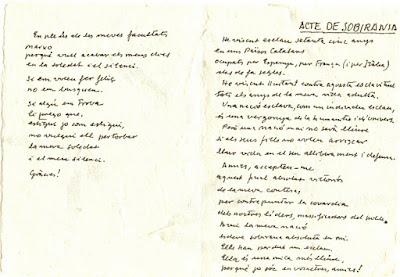 En ple ús de les meves facultats
marxo
perquè vull acabar els meus dies
en la soledat i el silenci.
Si em voleu fer feliç
no em busqueu.
Si algú em troba
li prego que,
estigui jo com estigui,
no vulgui ell pertorbar
la meva soledat
i el meu silenci.
Gràcies!
ACTE DE SOBIRANIA
He viscut esclau setanta-cinc anys
en uns Països Catalans
ocupats per Espanya, per França (i per Itàlia)
des de fa segles.
He viscut lluitant contra aquesta esclavitud
tots els anys de la meva vida adulta.
Una nació esclava, com un individu esclau,
és una vergonya de la humanitat i de l'univers.
Però una nació mai no serà lliure
si els seus fills no volen arriscar
llur vida en el seu alliberament i defensa.
Amics, accepteu-me
aquest final absolut victoriós
de la meva contesa,
per contrapuntar la covardia
dels nostres líders, massificadors del poble.
Avui la meva nació
esdevé sobirana absoluta en mi.
Ells han perdut un esclau.
Ella és una mica més lliure,
perquè jo sóc en vosaltres, amics!